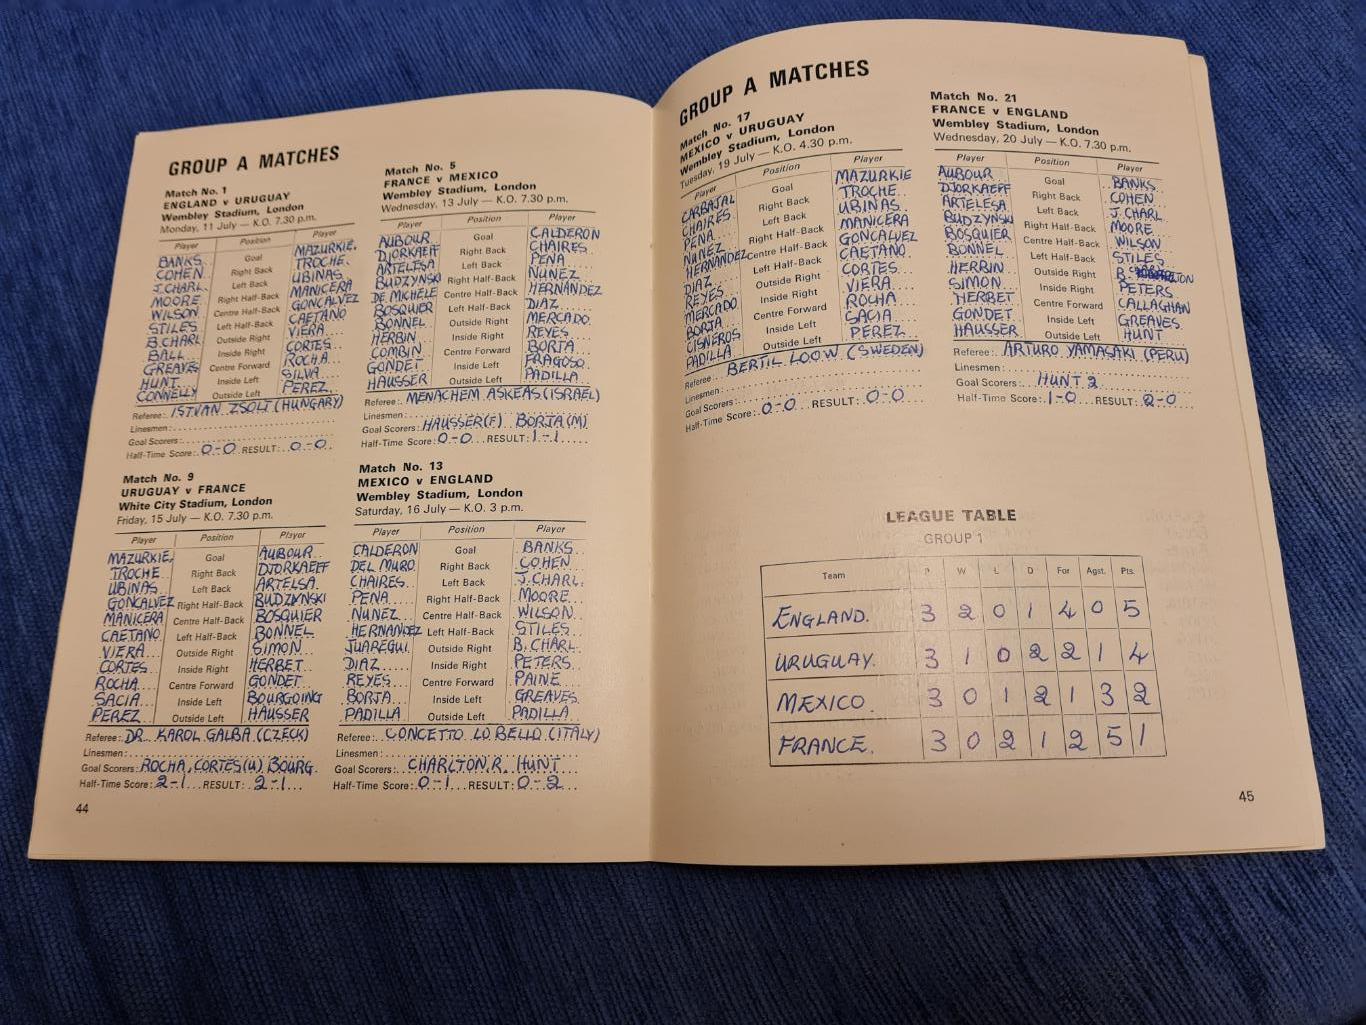 GROUP A MATCHES
Match No. 1
ENGLAND v URUGUAY
Wembley Stadium, London
Monday, 11 July — K.O. 7.30 p.m.
Player Position Player
BANKS Goal MAZURKIE.
COHEN Right Back TROCHE
J. CHARL Left Back UBINAS
MOORE Right Half-Back MANICERA
WILSON Centre Half-Back GONCALVEZ
STILES Left Half-Back CAETANO
B. CHARL Outside Right VIERA
BALL Inside Right CORTES
GREAVES Centre Forward ROCHA
HUNT Inside Left SILVA
CONNELLY Outside Left PEREZ
Referee: ISTVAN ZSOLT (HUNGARY)
Linesmen:
Goal Scorers:
Half-Time Score: 0-0 RESULT: 0-0
Match No. 5
FRANCE v MEXICO
Wembley Stadium, London
Wednesday, 13 July — K.O. 7.30 p.m.
Player Position Player
AUBOUR Goal CALDERON
DJORKAEFF Right Back CHAIRES
ARTELESA Left Back PENA
BUDZYNSKI Right Half-Back NUNEZ
DE MICHELE Centre Half-Back HERNANDEZ
BOSQUIER Left Half-Back DIAZ
BONNEL Outside Right MERCADO
HERBIN Inside Right REYES
COMBIN Centre Forward BORTA
GONDET Inside Left FRAGOSO
HAUSSER Outside Left PADILLA
Referee: MENACHEM ASKEAS (ISRAEL)
Linesmen:
Goal Scorers: HAUSSER(F) BORTA(M)
Half-Time Score: 0-0 RESULT: 1-1
Match No. 9
URUGUAY v FRANCE
White City Stadium, London
Friday, 15 July — K.O. 7.30 p.m.
Player Position Player
MAZURKIE. Goal AUBOUR
TROCHE Right Back DJORKAEFF
UBINAS Left Back ARTELSA
GONCALVEZ Right Half-Back BUDZYNSKI
MANICERA Centre Half-Back BOSQUIER
CAETANO Left Half-Back BONNEL
VIERA Outside Right SIMON
CORTES Inside Right HERBET
ROCHA Centre Forward GONDET
SACIA Inside Left BOURGOING
PEREZ Outside Left HAUSSER
Referee: DR. KAROL GALBA (CZECK)
Linesmen:
Goal Scorers: ROCHA, CORTES(U) BOURG.
Half-Time Score: 2-1 RESULT: 2-1
Match No. 13
MEXICO v ENGLAND
Wembley Stadium, London
Saturday, 16 July — K.O. 3 p.m.
Player Position Player
CALDERON Goal BANKS
DEL MURO Right Back COHEN
CHAIRES Left Back J. CHARL.
PENA Right Half-Back MOORE
NUNEZ Centre Half-Back WILSON
HERNANDEZ Left Half-Back STILES
JUAREGUI Outside Right B. CHARL.
DIAZ Inside Right PETERS
REYES Centre Forward PAINE
BORTA Inside Left GREAVES
PADILLA Outside Left PADILLA
Referee: CONCETTO LO BELLO (ITALY)
Linesmen:
Goal Scorers: CHARLTON.R. HUNT
Half-Time Score: 0-1 RESULT: 0-2
44
GROUP A MATCHES
Match No. 17
MEXICO v URUGUAY
Wembley Stadium, London
Tuesday, 19 July — K.O. 4.30 p.m.
Player Position Player
CARBAJAL Goal MAZURKIE
CHAIRES Right Back TROCHE
PENA Left Back UBINAS
NUNEZ Right Half-Back MANICERA
HERNANDEZ Centre Half-Back GONCALVEZ
DIAZ Left Half-Back CAETANO
REYES Outside Right CORTES
MERCADO Inside Right VIERA
BORTA Centre Forward ROCHA
CISNEROS Inside Left SACIA
PADILLA Outside Left PEREZ
Referee BERTIL LOOW (SWEDEN)
Linesmen:
Goal Scorers:
Half-Time Score: 0-0 RESULT: 0-0
Match No. 21
FRANCE v ENGLAND
Wembley Stadium, London
Wednesday, 20 July — K.O. 7.30 p.m.
Player Position Player
AUBOUR Goal BANKS
DJORKAEFF Right Back COHEN
ARTELESA Left Back J. CHARL
BUDZYNSKI Right Half-Back MOORE
BOSQUIER Centre Half-Back WILSON
BONNEL Left Half-Back STILES
HERBIN Outside Right B.
SIMON Inside Right PETERS
HERBET Centre Forward CALLAGHAN
GONDET Inside Left GREAVES
HAUSSER Outside Left HUNT
Referee: ARTURO YAMASAKI (PERU)
Linesmen:
Goal Scorers: HUNT 2
Half-Time Score: 1-0 RESULT: 2-0
LEAGUE TABLE
GROUP 1
Team P W L D For Agst. Pts.
ENGLAND. 3 2 0 1 4 0 5
URUGUAY. 3 1 0 2 2 1 4
MEXICO. 3 0 1 2 1 3 2
FRANCE. 3 0 2 1 2 5 1
45